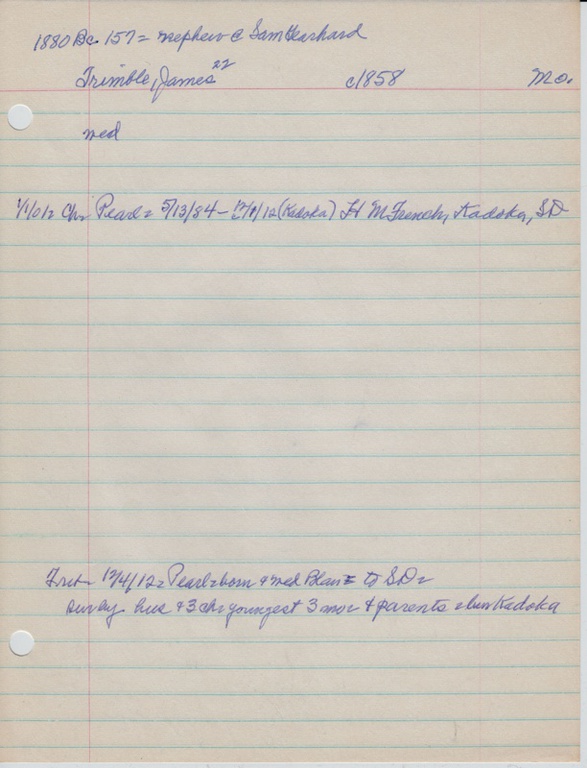 1880 Bc. 157 = nephew @ Sam Gearhard
Trimble, James 22 c1858 Mo.
med
1/1/01= Chr Pearl = 5/13/84 - 12/1/12 (Kadoka) H M French, Kadoka, SD
12/4/12 = Pearl = born & med Blair = to SD =
surv by hus & 3 ch = youngest 3 mos & parents = bur Kadoka